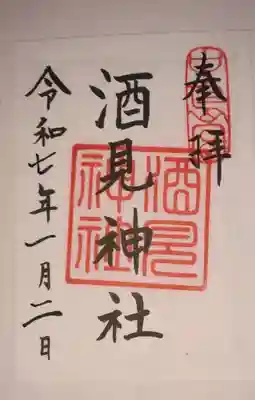 奉拝
酒見神社
酒見神社
令和七年一月二日